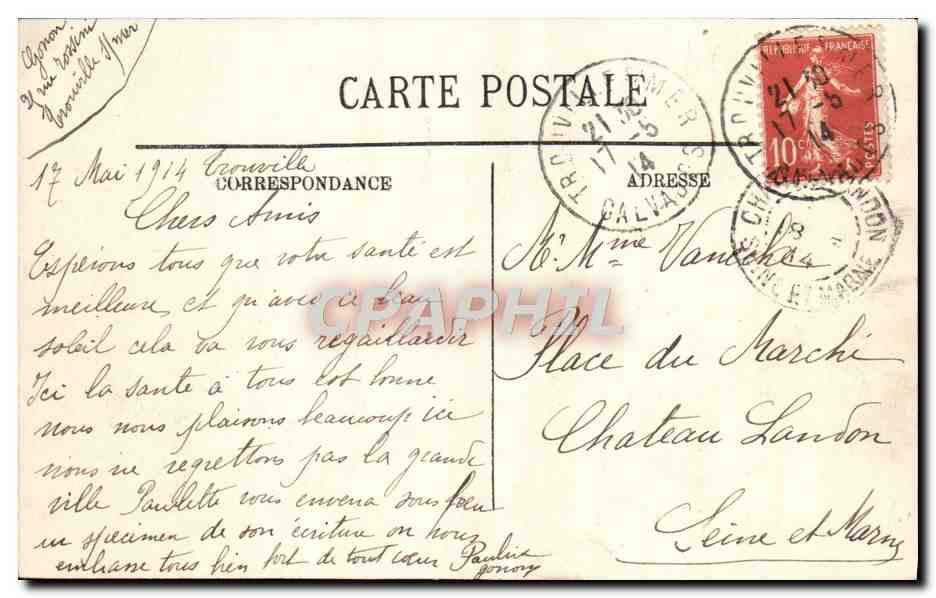 Gonon
21 rue Rossini
Trouville s/ mer
CARTE POSTALE
17 Mai 1914 Trouville
CORRESPONDANCE
Chers Amis
Espérons tous que votre santé est
meilleure et qu'avec ce beau
soleil cela va vous regaillardir
Ici la santé à tous est bonne
nous nous plaisons beaucoup ici
nous ne regrettons pas la grande
ville Paulette vous envena sous peu
un specimen de son écriture on nous
embrasse tous bien fort de tout cœur Pauline
gonon
ADRESSE
Mr Mme
Place du Marché
Chateau Landon
Seine et Marne
REPUBLIQUE FRANÇAISE
10 c
POSTES
TROUVILLE MER
21 30
17 -5
14
CALVADOS
TROUVILLE MER
21 30
17 -5
14
CALVADOS
CH LANDON
18
14
SEINE ET MARNE
CPAPHIL